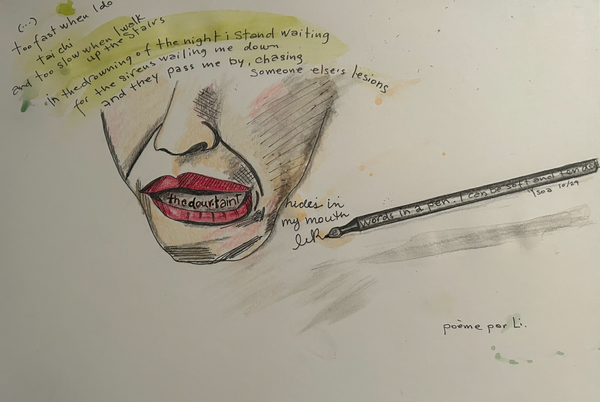 (...)
too fast when I do
tai chi
and too slow when I walk
up the stairs
in the drowning of the night i stand waiting
for the sirens wailing me down
and they pass me by, chasing
someone else's lesions
the dour taint
hides in
my mouth
words in a pen. I can be soft and
ysoa 10/29
poème par Li.